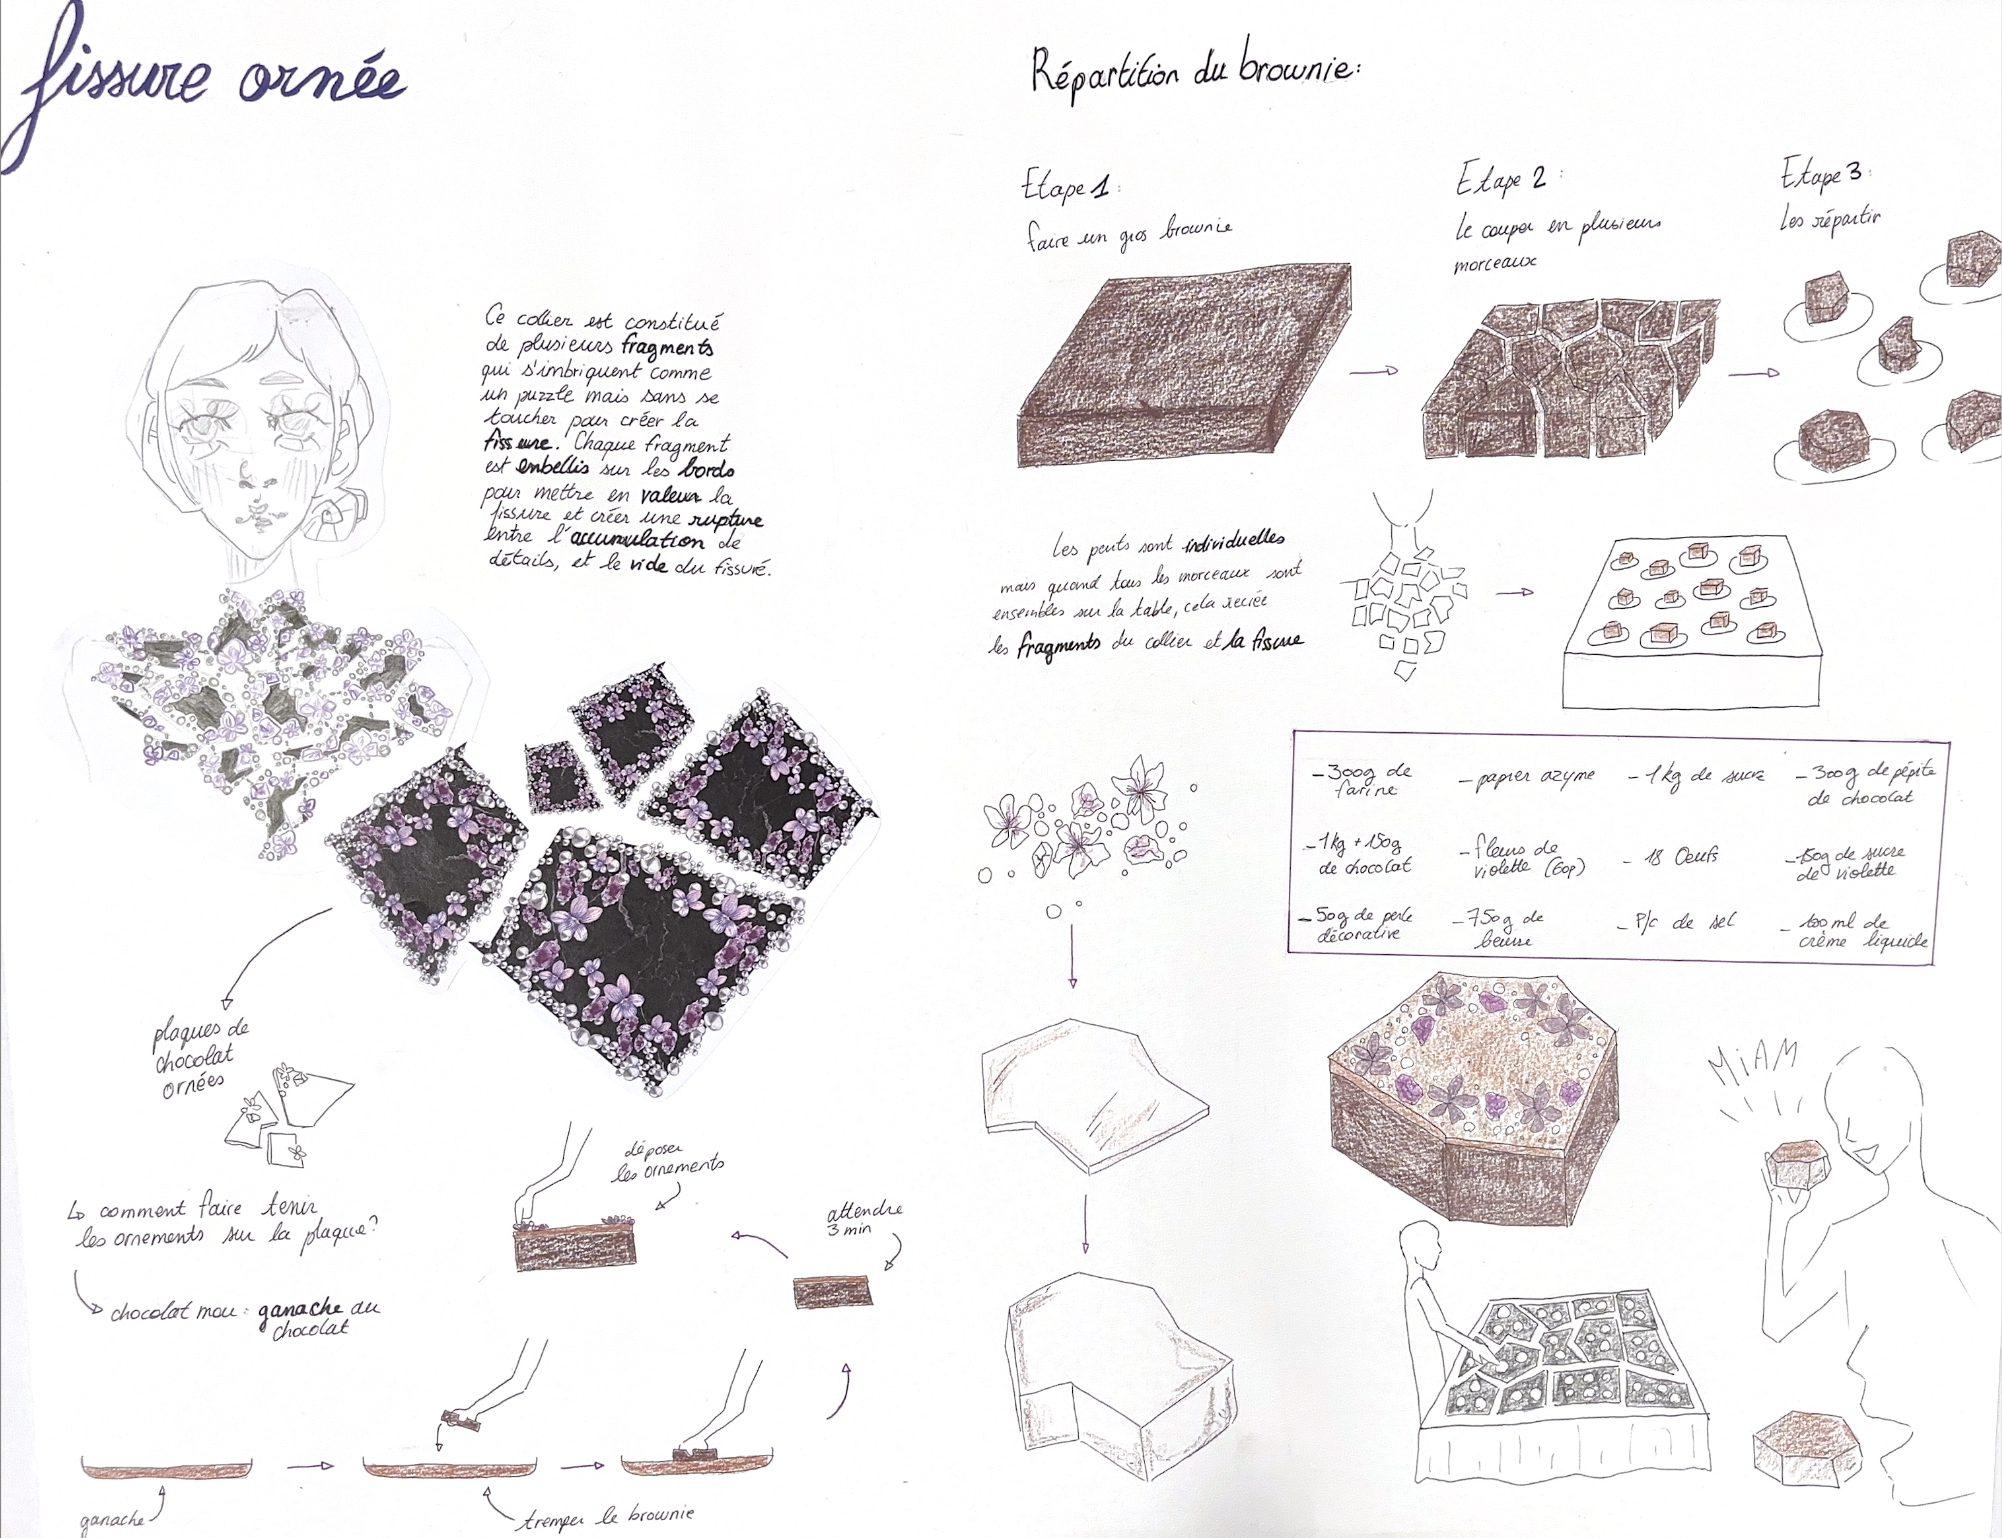 fissure ornée
Ce collier est constitué
de plusieurs fragments
qui s'imbriquent comme
un puzzle mais sans se
toucher pour créer la
fissure. Chaque fragment
est embellis sur les bords
pour mettre en valeur la
fissure et créer une rupture
entre l'accumulation de
détails, et le vide du fissuré.
plaques de
chocolat
ornées
↳ comment faire tenir
les ornements sur la plaque?
chocolat mou : ganache au
chocolat
déposer
les ornements
attendre
3 min
ganache
tremper le brownie
Répartition du brownie:
Etape 1:
faire un gros brownie
Etape 2:
Le couper en plusieurs
morceaux
Etape 3:
Les répartir
Les parts sont individuelles
mais quand tous les morceaux sont
ensembles sur la table, cela recrée
les fragments du collier et la fissure
-300g de
farine
-papier azyme
-1kg de sucre
-300g de pépite
de chocolat
-1kg + 150g
de chocolat
-fleurs de
violette (60p)
-18 Oeufs
-150g de sucre
de violette
-50g de perle
décorative
-750g de
beurre
-P/c de sel
-100ml de
crème liquide
MIAM